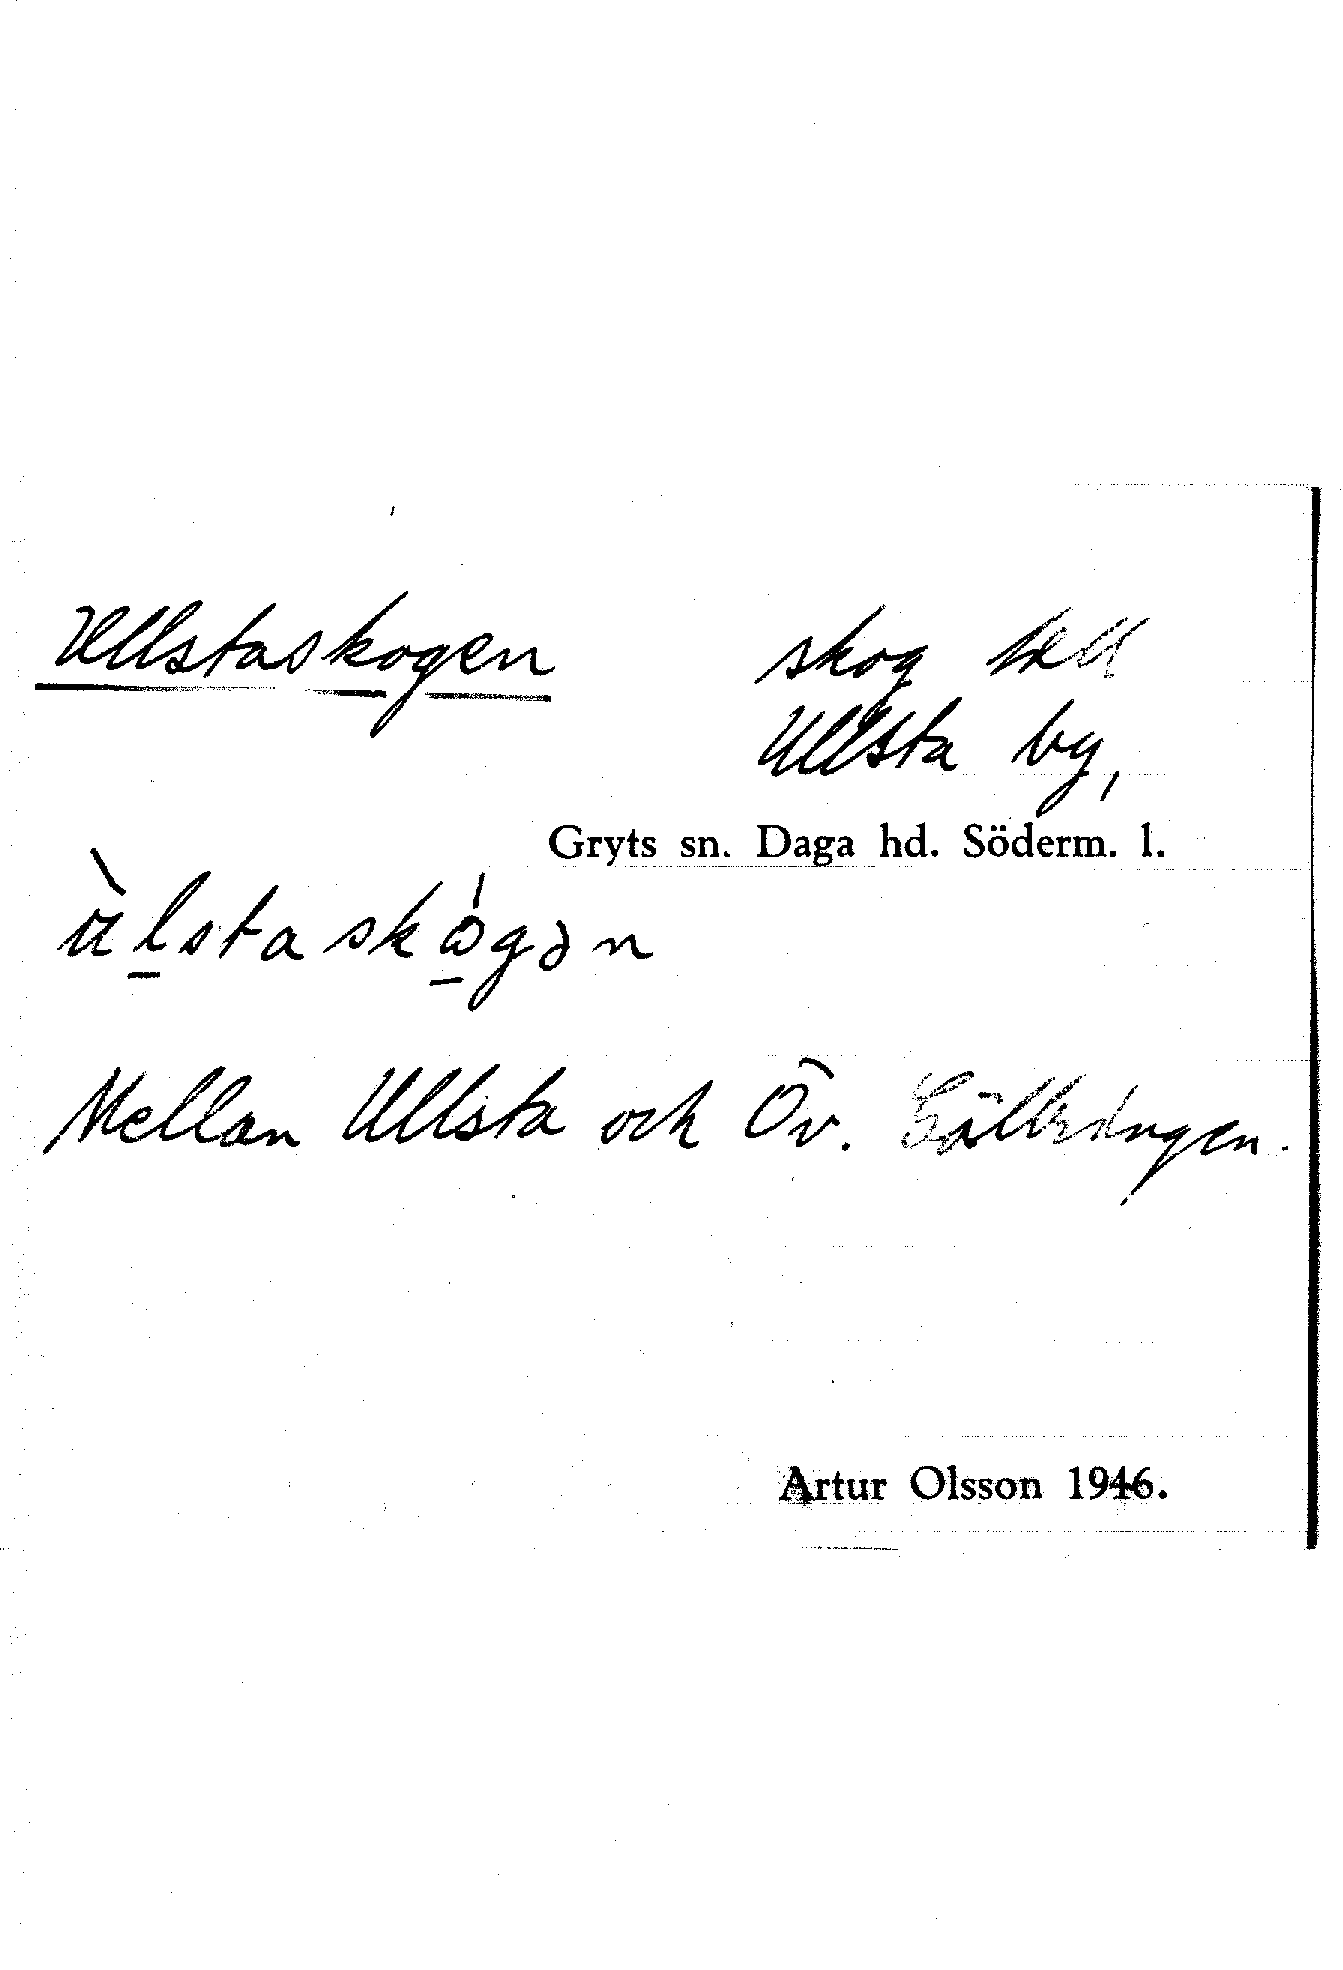 Ullstaskogen
skog till
Ullsta by,
Gryts sn. Daga hd. Söderm. l.
ùlstaskógən
Mellan Ullsta och Öv.
Artur Olsson 1946.